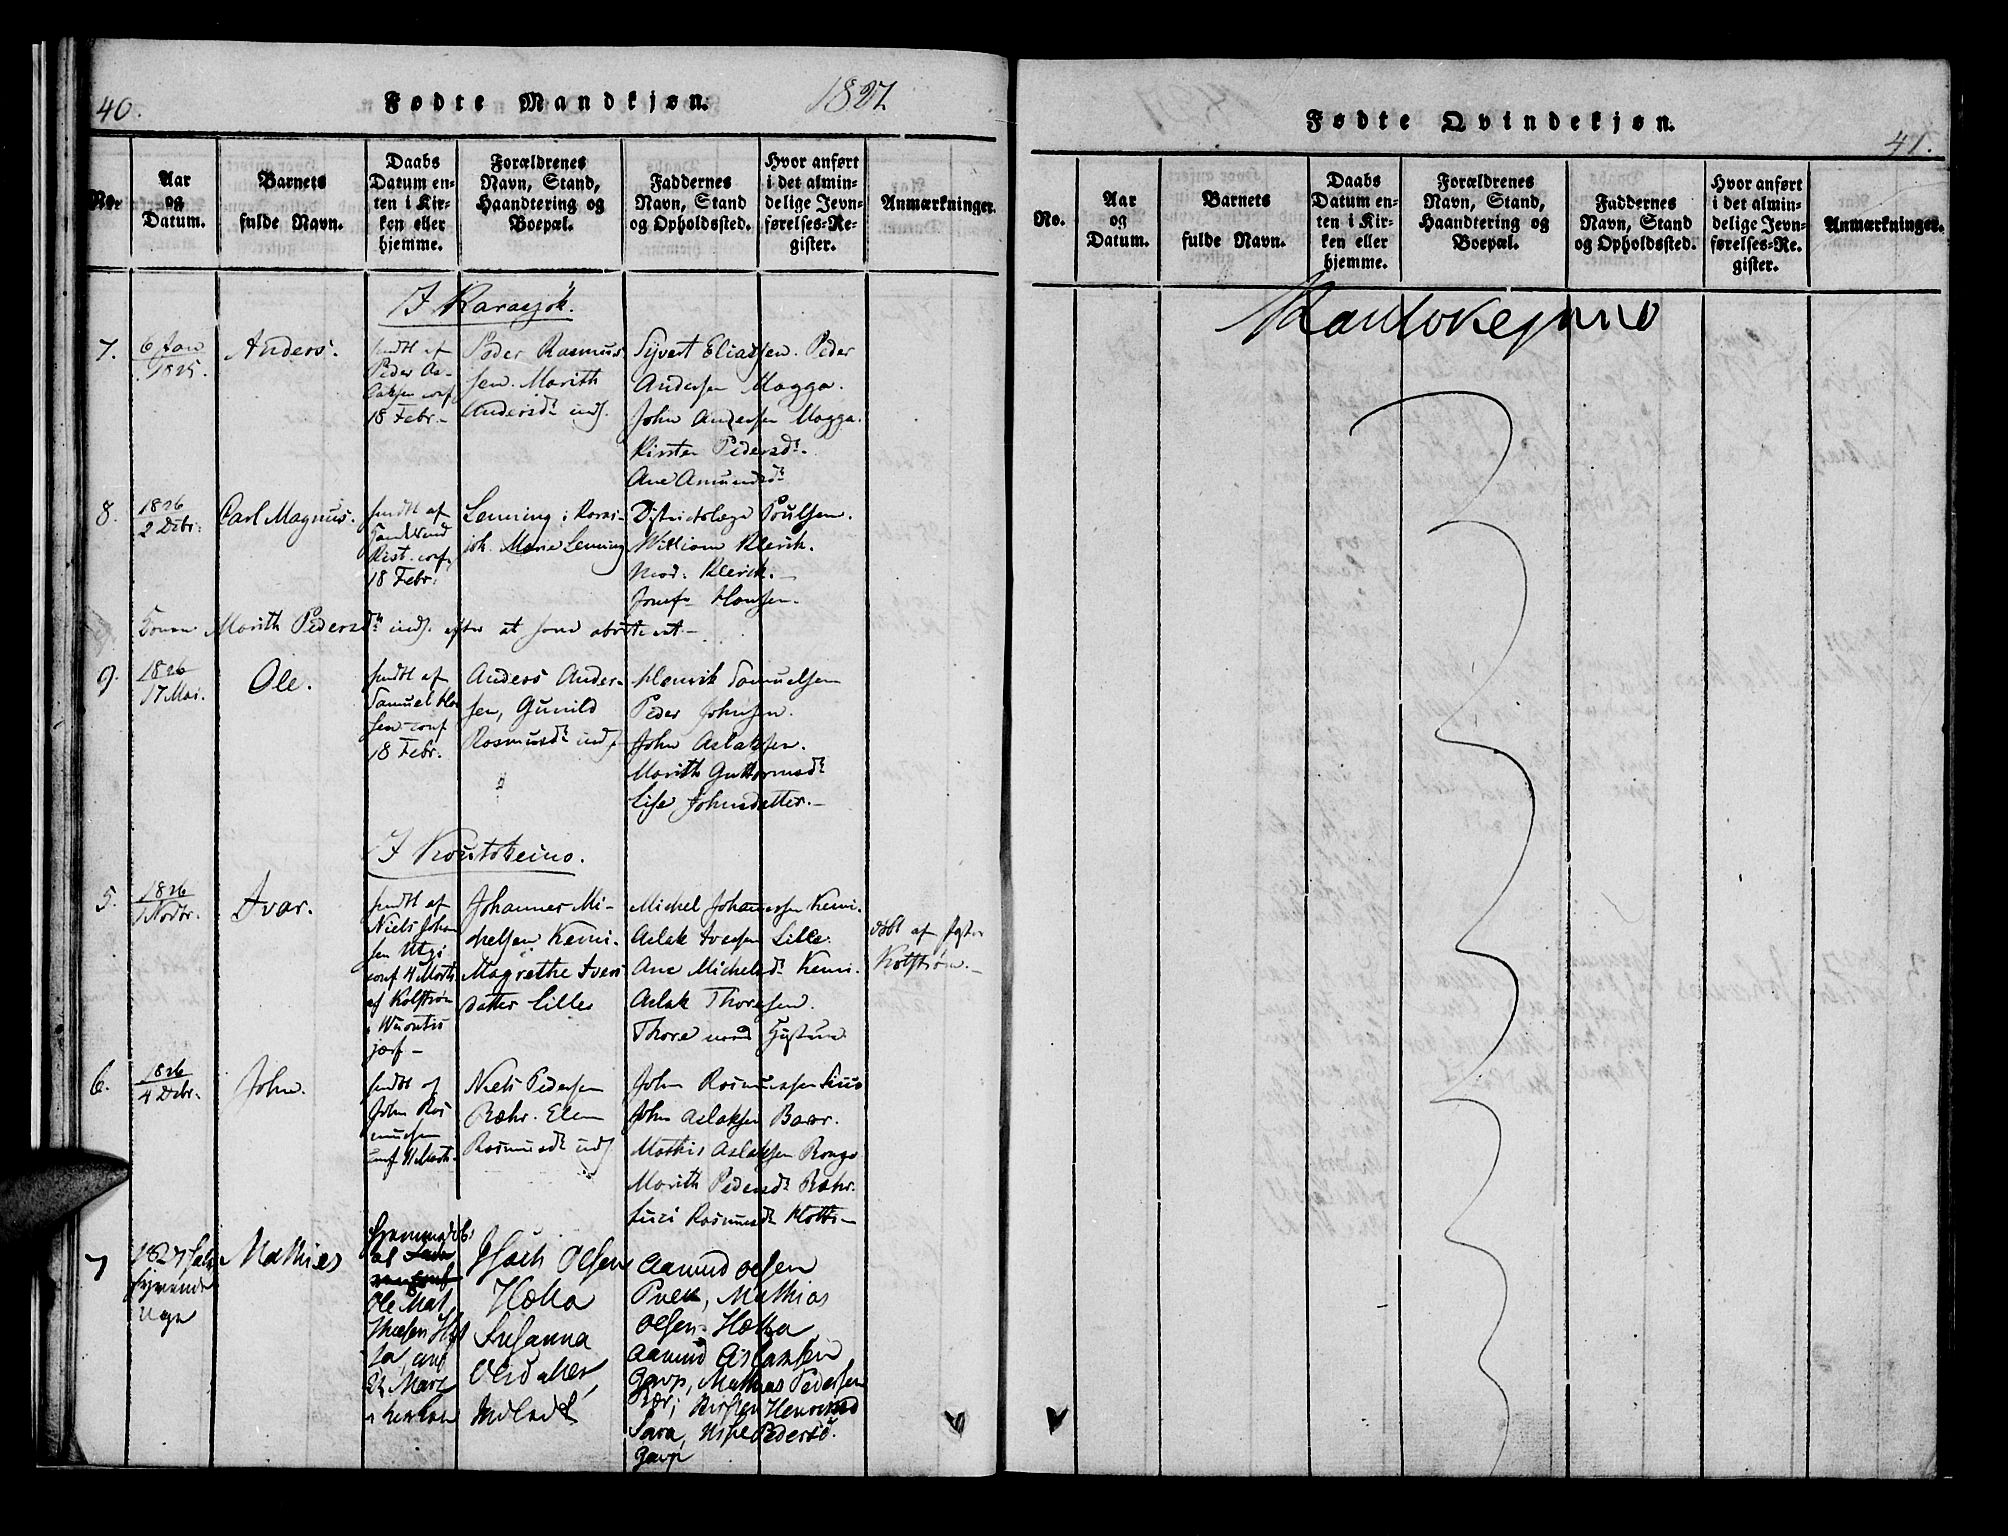 40.
Fødte Mandkjøn.
1827
No.
Aar og Datum.
Barnets fulde Navn.
Daabs Datum enten i Kirken eller hjemme.
Forældrenes Navn, Stand, Haandtering og Boepæl.
Faddernes Navn, Stand og Opholdssted.
Hvor anført i det almindelige Jevnførelses-Register.
Anmærkninger.
I Karasjok.
7.
6 Jan
1825.
Anders.
hmdt af
Peder As-
laksen conf
18 Febr.
Peder Rasmus
sen. Marith
Andersdr inds.
Syvert Eliassen. Peder
Andersen Magga.
John Andersen Magga.
Kirsten Pedersdr.
Ane Amundsdr
8.
1826
2 Decbr.
Carl Magnus.
hmdt af
conf
18 Febr.
Lenning i Karas-
jok. Marie Lenning
Districtslæge Poulsen.
William Klerck.
Mad. Klerck.
Hansen.
Marith Pedersdr inds. efter at
9.
1826
17 Mai.
Ole.
hmdt af
Samuel
sen conf
18 Febr.
Anders Ander-
sen, Gunild
Rasmusdr inds
Henrik Samuelsen
Peder Johnsen.
John Aslaksen.
Marith Guttormsdr
Lise Johnsdatter.
I Koutokeino.
5.
1826
1 Novbr.
Ivar.
hmdt af
Niels Johan
sen Utzi
conf 11 Marts
af Kolstrøm
i
Johannes Mi-
chelsen Kemi.
Magrethe Ivers
datter Lille
Michel Johannessen Kemi.
Aslak Iversen Lille.
Ane Michelsdr Kemi.
Aslak Thoresen.
Thore
døbt af
Kolstrøm.
6.
1826
4 Decbr.
John.
hmdt af
John Ras
mussen
conf 11 Marts.
Niels Pedersen
Bæhr. Elen
Rasmusdr inds
John Rasmussen
John Aslaksen Baer.
Mathis Aslaksen Rongo
Marith Pedersdr Bæhr.
Rasmusdr Hætta
7
1827
Mathies
af
Ole Mat
thæsen Hæt
ta, conf
22 Marz
Isach Olsen
Hætta
Susanna
Olsdatter,
Aamund Olsen
Mathias
Olsen Hætta
Aamund Aslaksen
Gavp, Mathias Pedersen
Bær, Kirsten Henriksd
Sara, Pedersd.
Gavp
Fødte Qvindekjøn.
41.
No.
Aar og Datum.
Barnets fulde Navn.
Daabs Datum enten i Kirken eller hjemme.
Forældrenes Navn, Stand, Haandtering og Boepæl.
Faddernes Navn, Stand og Opholdssted.
Hvor anført i det almindelige Jevnførelses-Register.
Anmærkninger.
Kautokejno